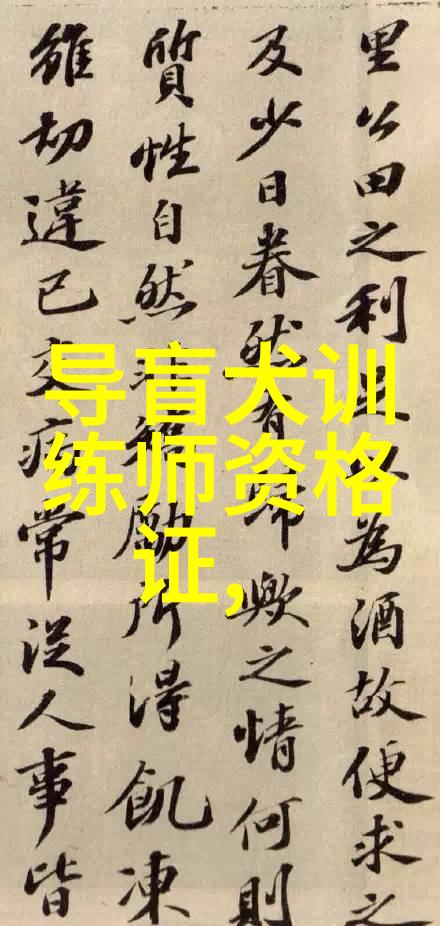 导盲犬训
练师资格
证,
里公田之利足以為酒故便求之
及少日眷然有歸歟之情何則
質性自然非矯勵所得飢凍
雖切違己交病常從人事皆